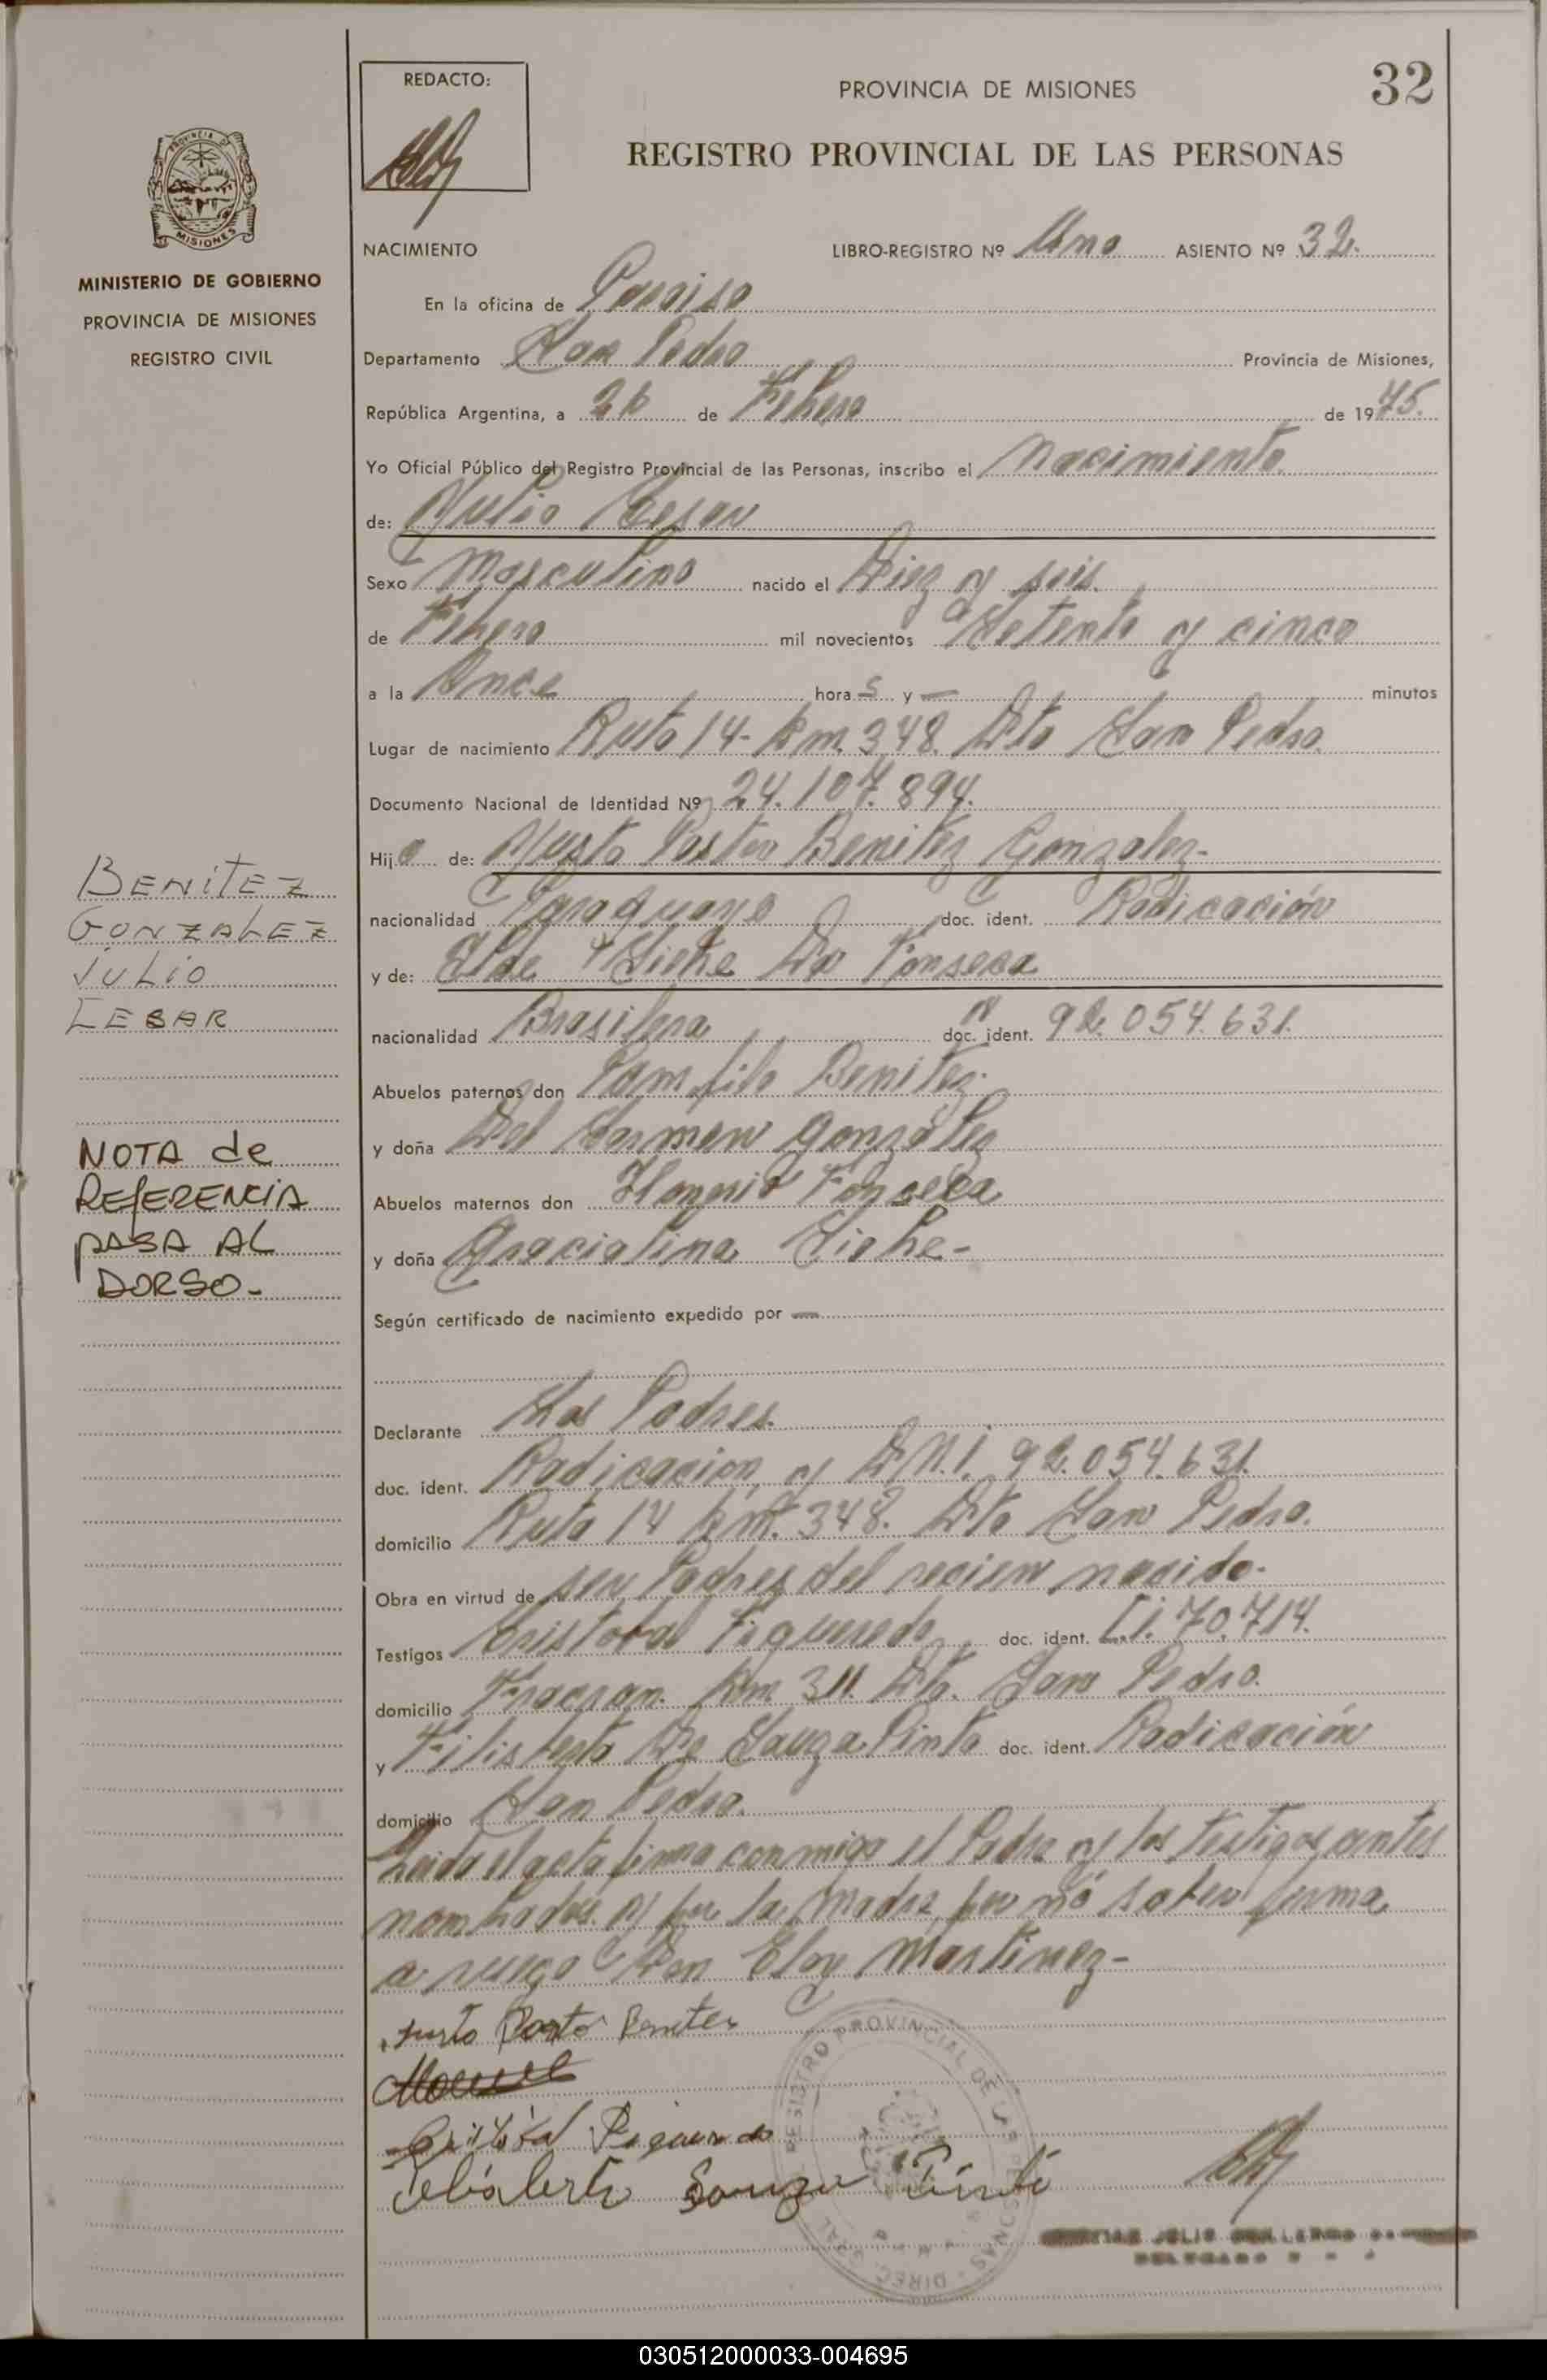 32
REDACTO:
PROVINCIA DE MISIONES
REGISTRO PROVINCIAL DE LAS PERSONAS
MISIONES
MINISTERIO DE GOBIERNO
PROVINCIA DE MISIONES
REGISTRO CIVIL
NACIMIENTO LIBRO-REGISTRO Nº Uno ASIENTO Nº 32.
En la oficina de Paraiso
Departamento San Pedro Provincia de Misiones,
República Argentina, a 26 de Febero de 1975.
Yo Oficial Público del Registro Provincial de las Personas, inscribo el Nacimiento
de: Julio Cesar
Sexo Masculino nacido el Diez y seis.
de Febero mil novecientos Setenta y cinco
a la Once hora s y — minutos
Lugar de nacimiento Ruta 14- Km. 348. Dto San Pedro.
Documento Nacional de Identidad Nº 24.107.894.
Hijo de: Justo Pastor Benitez Gonzalez-
nacionalidad Paraguayo doc. ident. Radicación
y de: Elde Siehe Da Fonseca
nacionalidad Brasilera doc. ident. 92.054.631.
Abuelos paternos don Pamfilo Benitez.
y doña Del Carmen Gonzalez
Abuelos maternos don Honorio Fonseca
y doña Graciolina Siehe-
Según certificado de nacimiento expedido por —
Declarante Los Padres.
doc. ident. Radicación y D.N.I. 92.054.631.
domicilio Ruta 14 Km. 348. Dto San Pedro.
Obra en virtud de ser Padres del recien nacido-
Testigos Cristobal Figueredo doc. ident. C.I. 70.714.
domicilio Fracran. Km. 311. Dto. San Pedro.
y Filisberto De Sauza Pinto doc. ident. Radicación
domicilio San Pedro.
Leida el acta firma conmigo el Padre y los testigos antes
nombrados. y por la Madre por no saber firma
a ruego Don Eloy Martinez-
Justo Pasto Benites
Cristobal Figueredo
Souza Pinto
BENITEZ
GONZALEZ
JULIO
CESAR
NOTA de
REFERENCIA
PASA AL
DORSO-
REGISTRO PROVINCIAL DE LAS PERSONAS
030512000033-004695